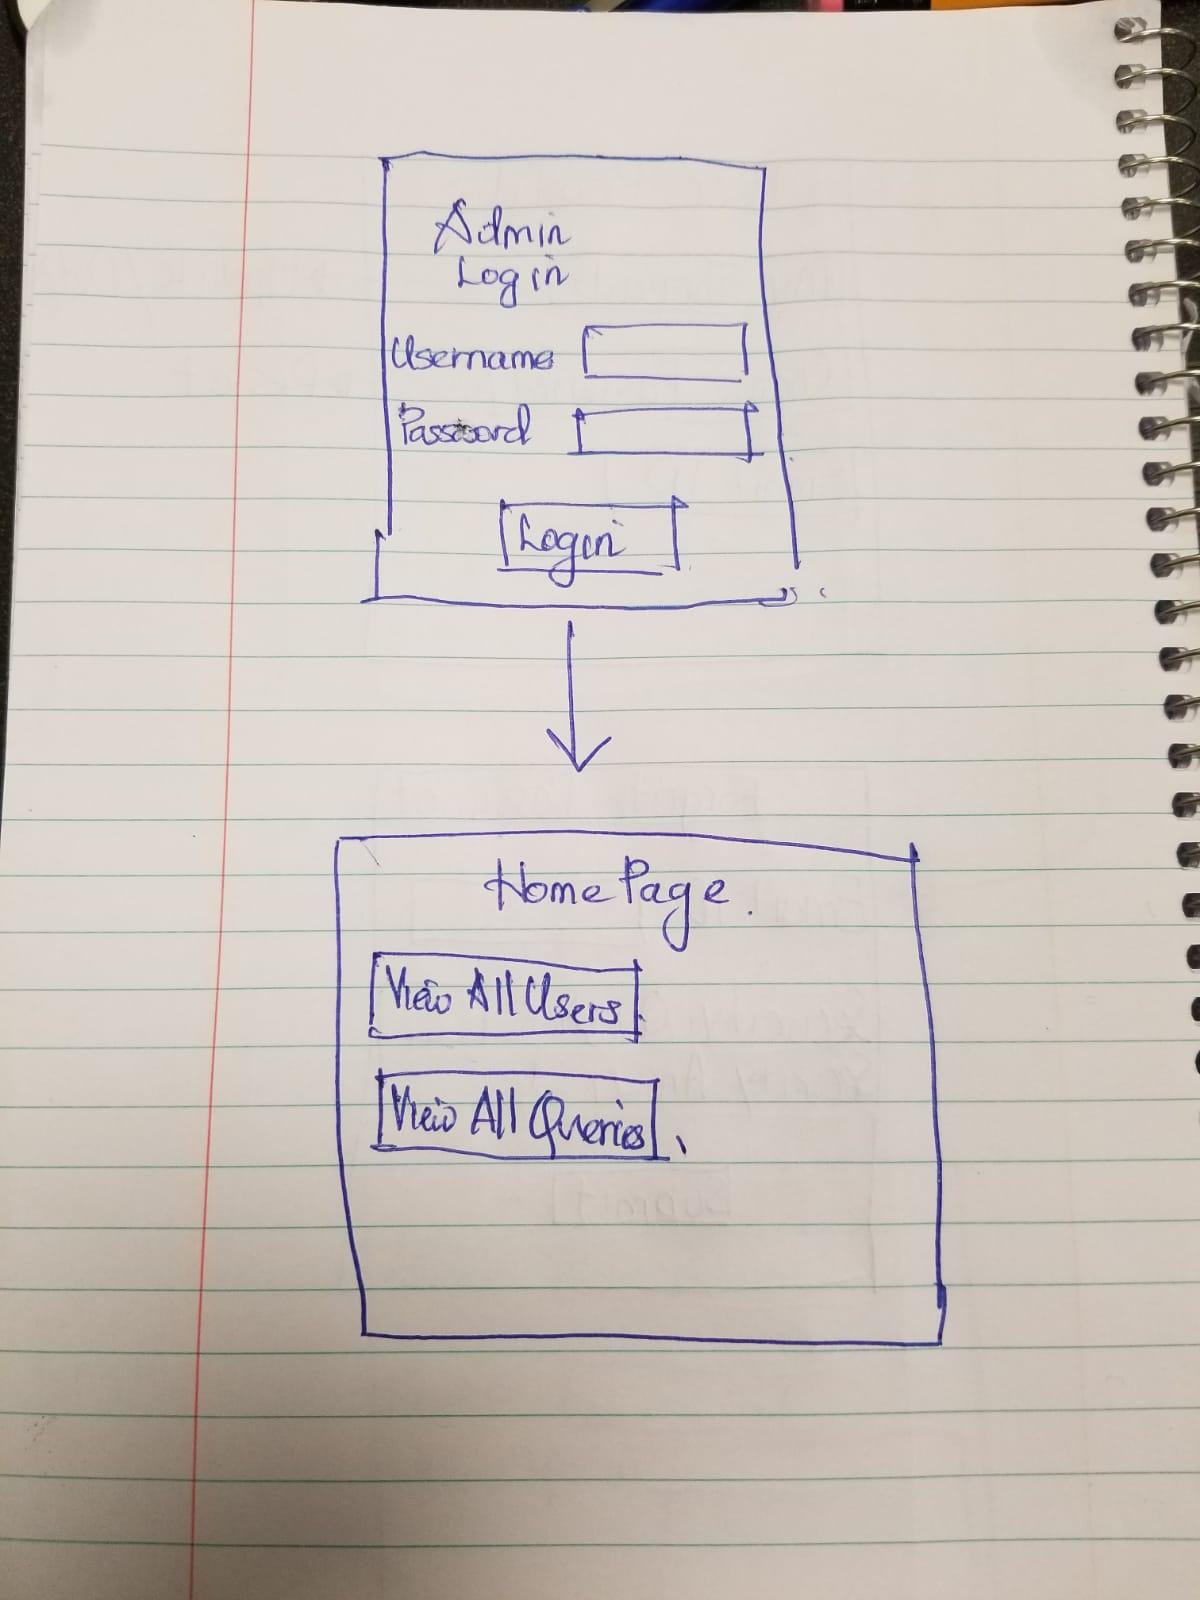 Admin
Login
Username
Password
Login
Home Page.
View All Users
View All Queries